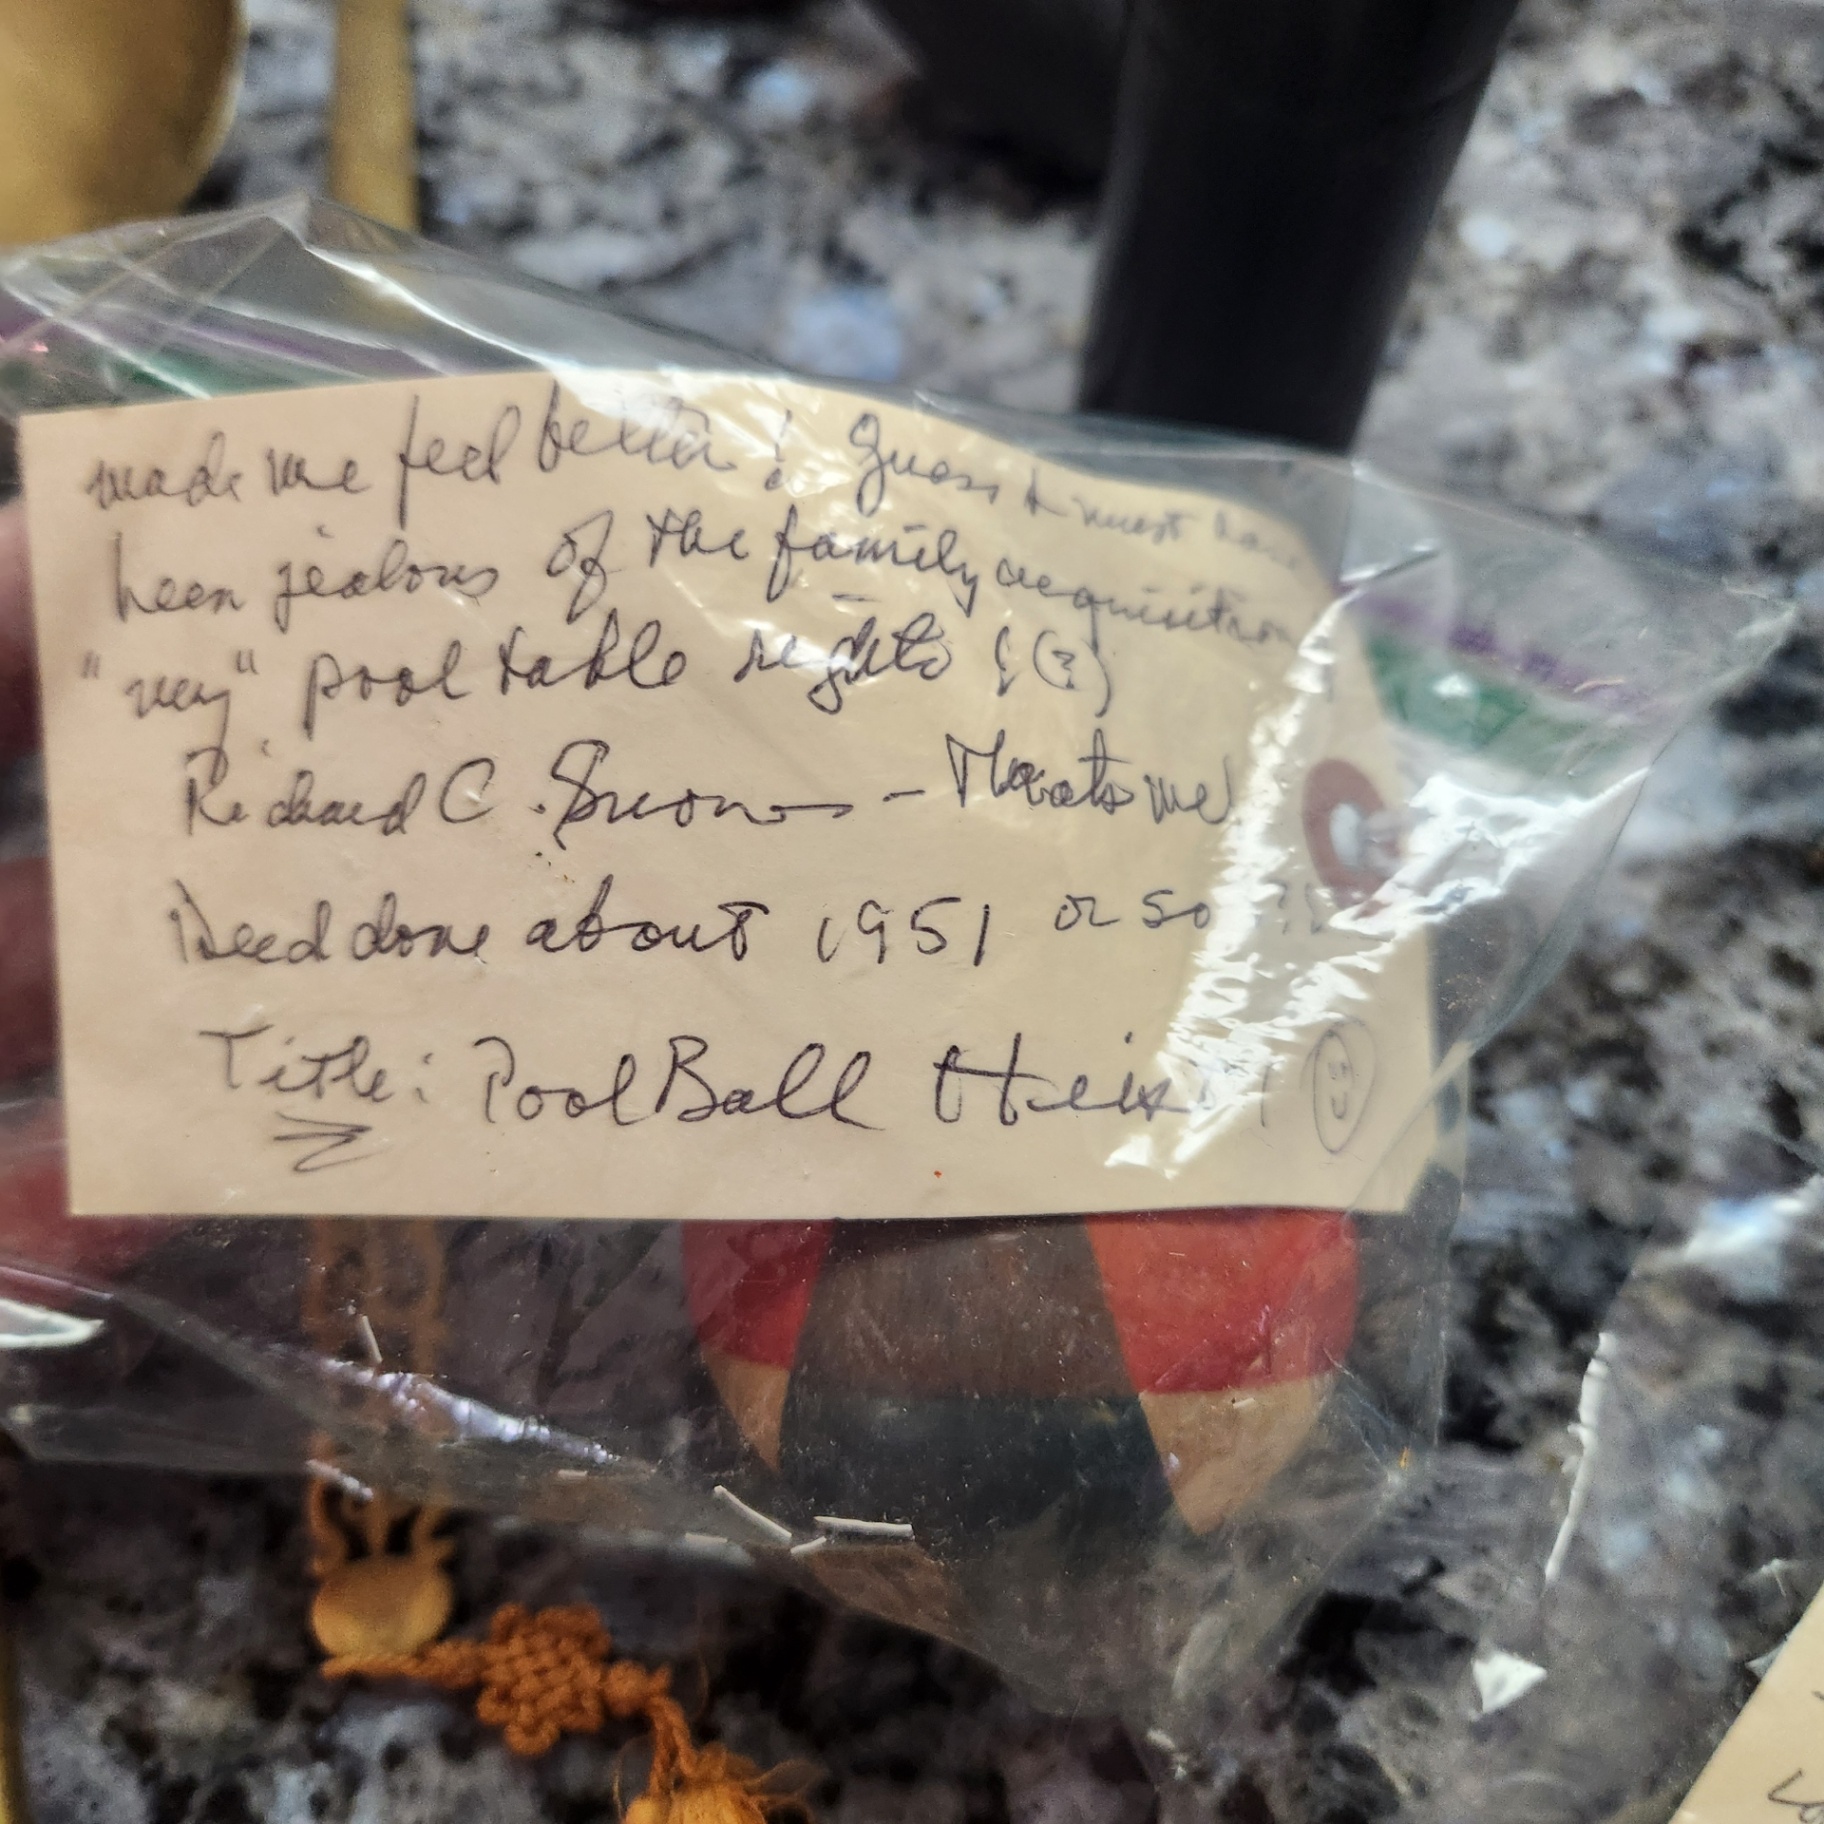 made me feel better! Guess I must have
been jealous of the family acquisition
"my" pool table rights! (?)
Richard C. - Thats me
Deed done about 1951 or so
Title: Pool Ball Heist!